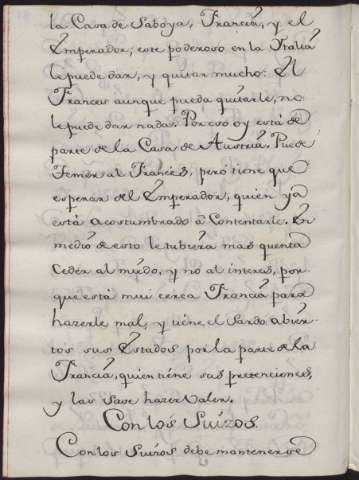 la Casa de Saboya, Francia, y el
Emperador; este poderoso en la Italia
le puede dar, y quitar mucho: El
Frances aunque pueda quitarle, no
le puede dar nada. Por eso oy está de
parte de la Casa de Austria. Puede
Temer al Francés, pero tiene que
esperar del Emperador, quien yá
está acostumbrado á Contentarle. En
medio de esto le tubiera mas quenta
Ceder al miedo, y no al interes, por
que está mui cerca Francia para
hazerle mal, y tiene el Sardo abier-
tos sus Estados por la parte de la
Francia, quien tiene sus pretenciones,
y las save hazer Valer.
Con los Suizos.
Con los Suizos debe mantenerse